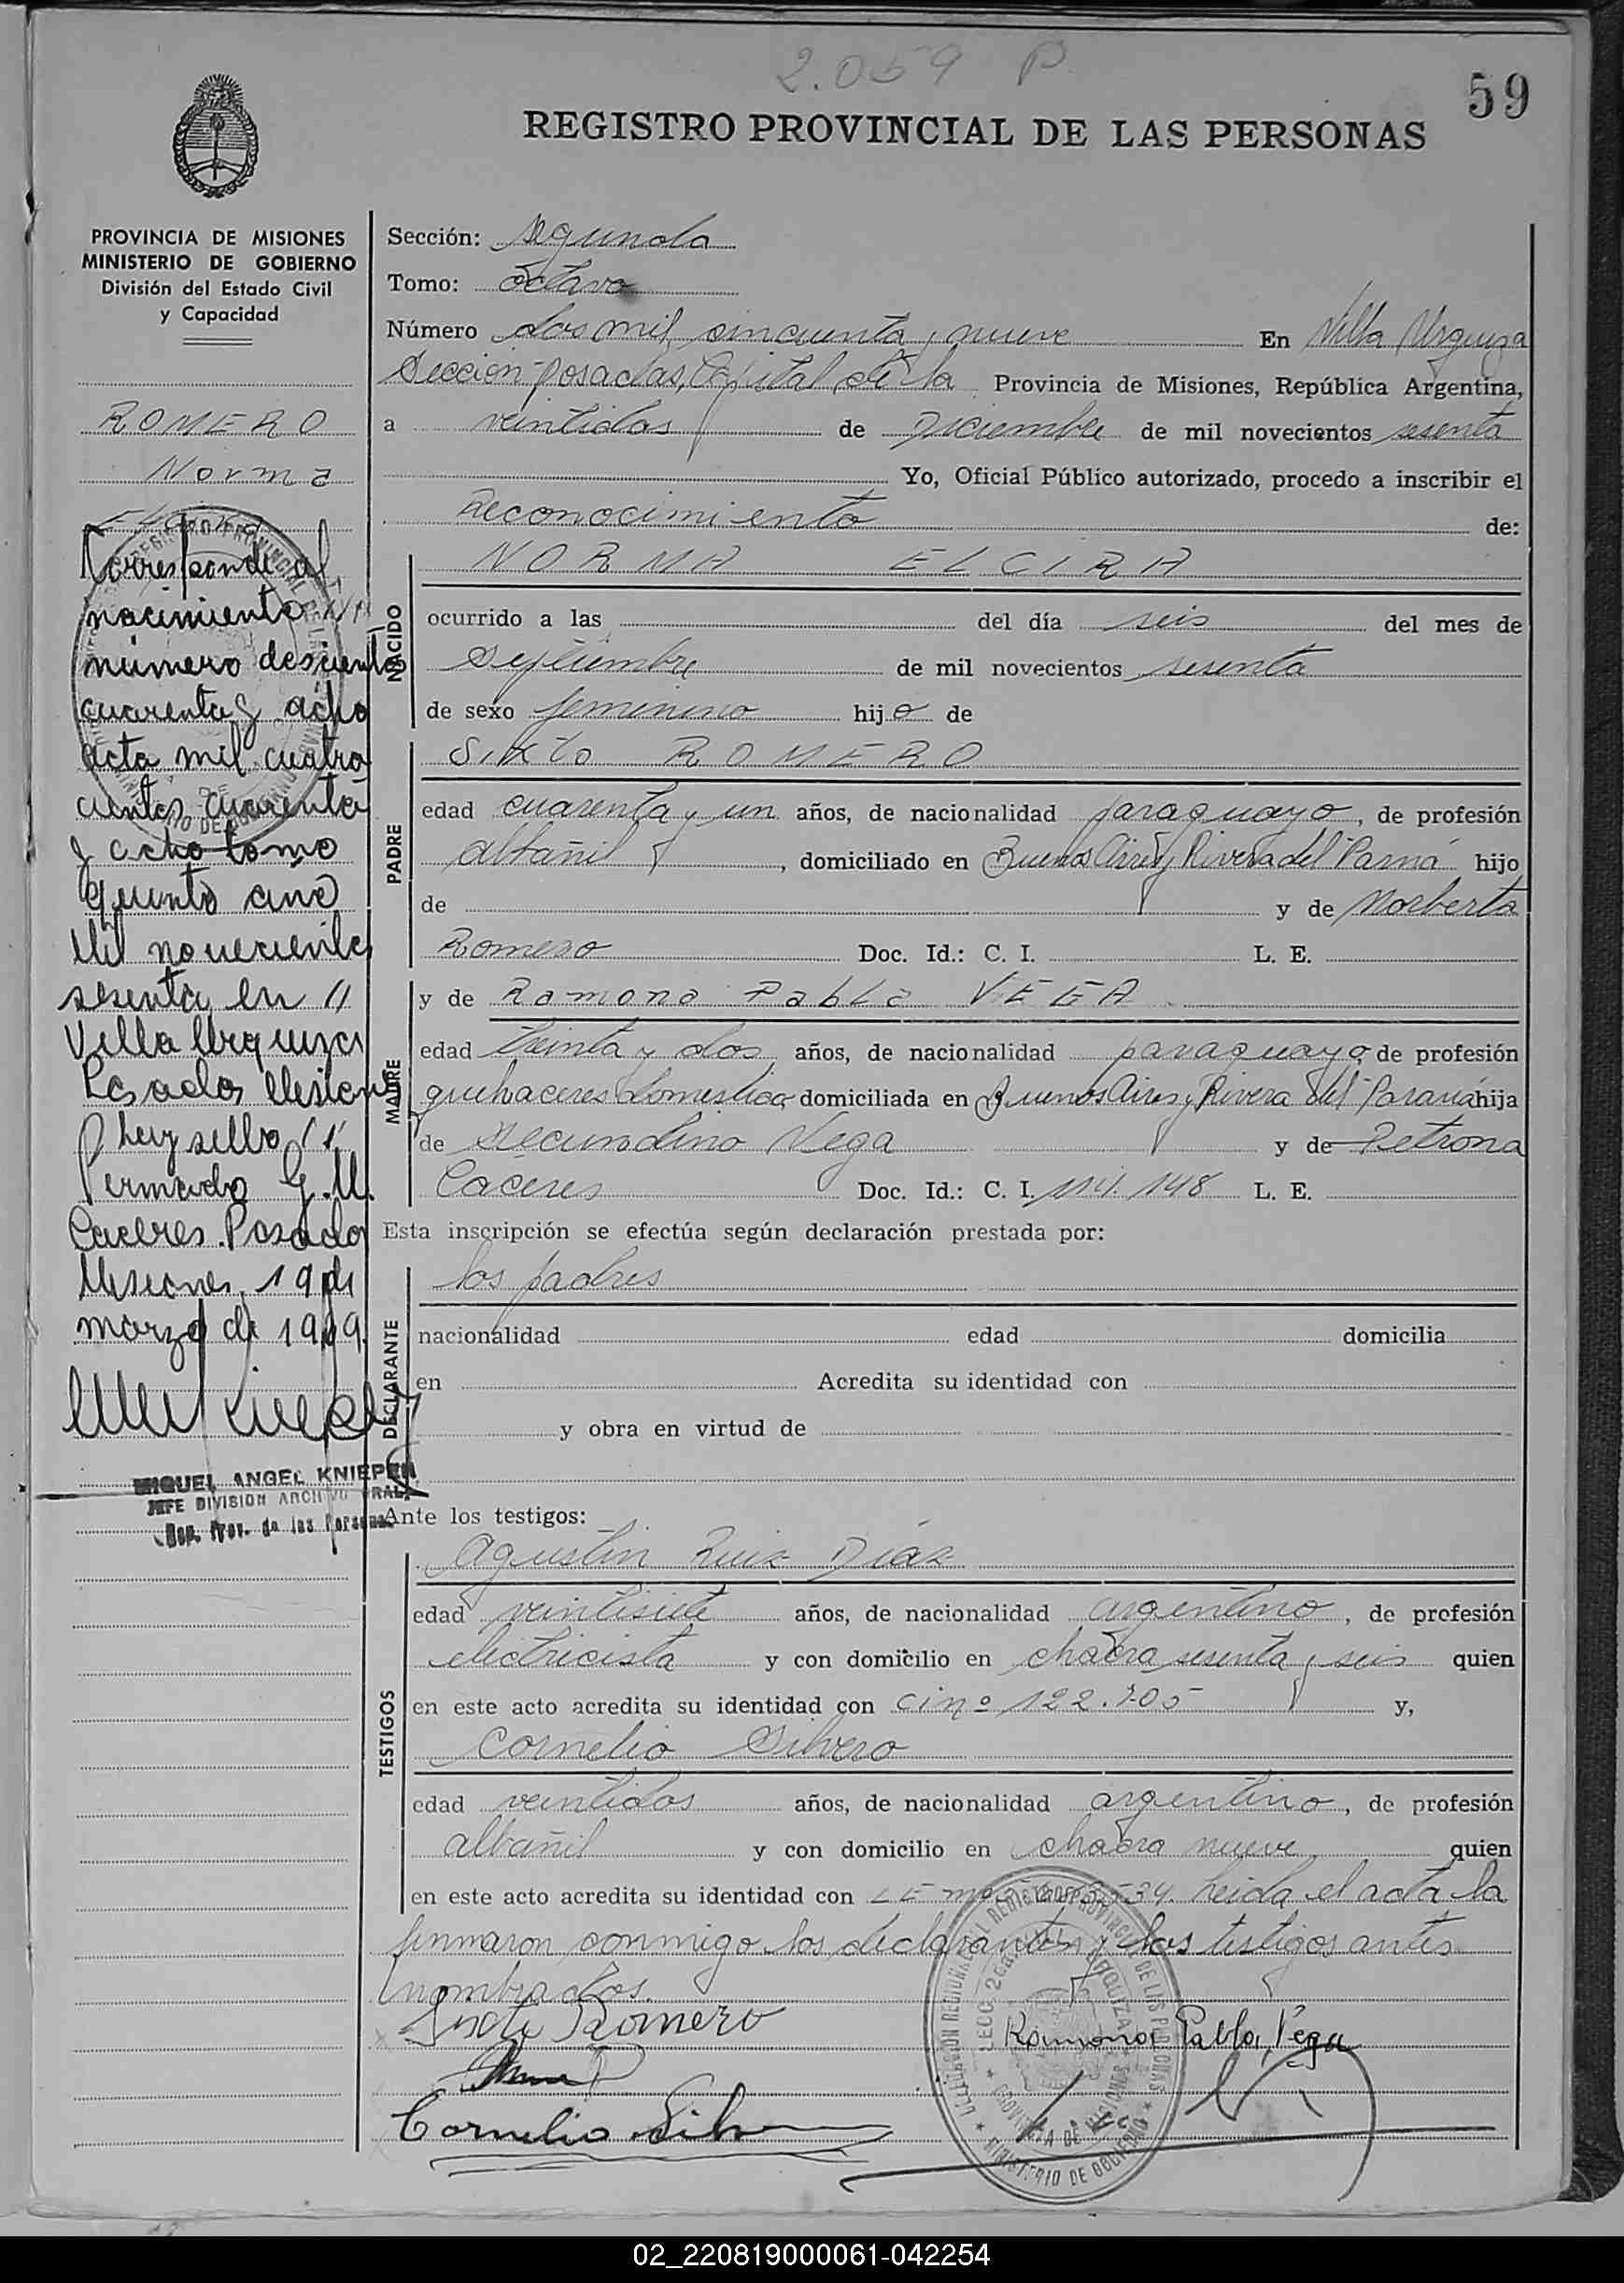 2.059 P
59
REGISTRO PROVINCIAL DE LAS PERSONAS
PROVINCIA DE MISIONES
MINISTERIO DE GOBIERNO
División del Estado Civil
y Capacidad
ROMERO
Norma
Elcira
Corresponde al
nacimiento
número doscientos
cuarenta y ocho
acta mil cuatro
cientos cuarenta
y ocho tomo
quinto año
Mil novecientos
sesenta en //
Villa Urquiza
Posadas Misiones
Hay sello
Fernando G. M.
Caceres. Posadas
Misiones, 19 de
marzo de 1969.
MIGUEL ANGEL KNIEPER
JEFE DIVISION ARCHIVO GRAL.
Reg. Prov. de las Personas
Sección: segunda
Tomo: octavo
Número dos mil cincuenta y nueve En Villa Urquiza
Sección Posadas, Capital de la Provincia de Misiones, República Argentina,
a veintidos de Diciembre de mil novecientos sesenta
Yo, Oficial Público autorizado, procedo a inscribir el
Reconocimiento de:
NACIDO
NORMA ELCIRA
ocurrido a las del día seis del mes de
septiembre de mil novecientos sesenta
de sexo femenino hija de
PADRE
Sixto ROMERO
edad cuarenta y un años, de nacionalidad paraguayo, de profesión
albañil, domiciliado en Buenos Aires y Rivera del Parná hijo
de y de Norberta
Romero Doc. Id.: C. I. L. E.
MADRE
y de Ramona Pabla VEGA
edad treinta y dos años, de nacionalidad paraguaya de profesión
quehaceres domesticos domiciliada en Buenos Aires y Rivera del Paraná hija
de Secundino Vega y de Petrona
Caceres Doc. Id.: C. I. 114.148 L. E.
Esta inscripción se efectúa según declaración prestada por:
DECLARANTE
los padres
nacionalidad edad domicilia
en Acredita su identidad con
y obra en virtud de
Ante los testigos:
TESTIGOS
Agustin Ruiz Diaz
edad veintisiete años, de nacionalidad argentino, de profesión
electricista y con domicilio en chacra sesenta y seis quien
en este acto acredita su identidad con ci nº 122.705 y,
Cornelio Silvero
edad veintidos años, de nacionalidad argentino, de profesión
albañil y con domicilio en chacra nueve quien
en este acto acredita su identidad con LE Leida el acta la
firmaron conmigo los declarantes y los testigos antes
nombrados.
Sixto Romero
Ramona Pabla Vega
Cornelio Silvero
02_220819000061-042254